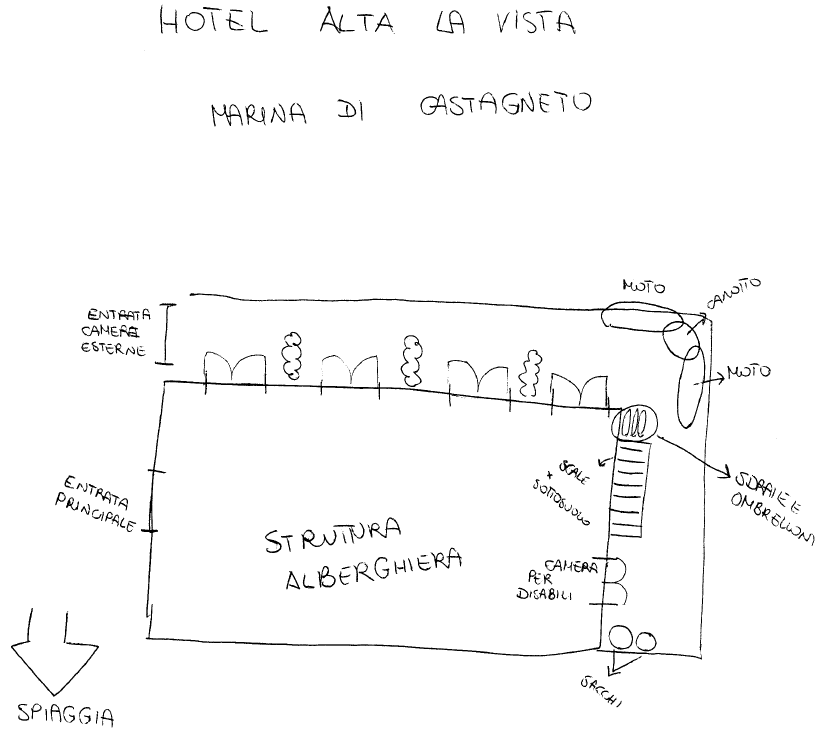 HOTEL ALTA LA VISTA
MARINA DI CASTAGNETO
MOTO
CANOTTO
ENTRATA
CAMERE
ESTERNE
MOTO
ENTRATA
PRINCIPALE
SCALE
+
SOTTOSUOLO
SDRAIE E
OMBRELLONI
STRUTTURA
ALBERGHIERA
CAMERA
PER
DISABILI
SACCHI
SPIAGGIA